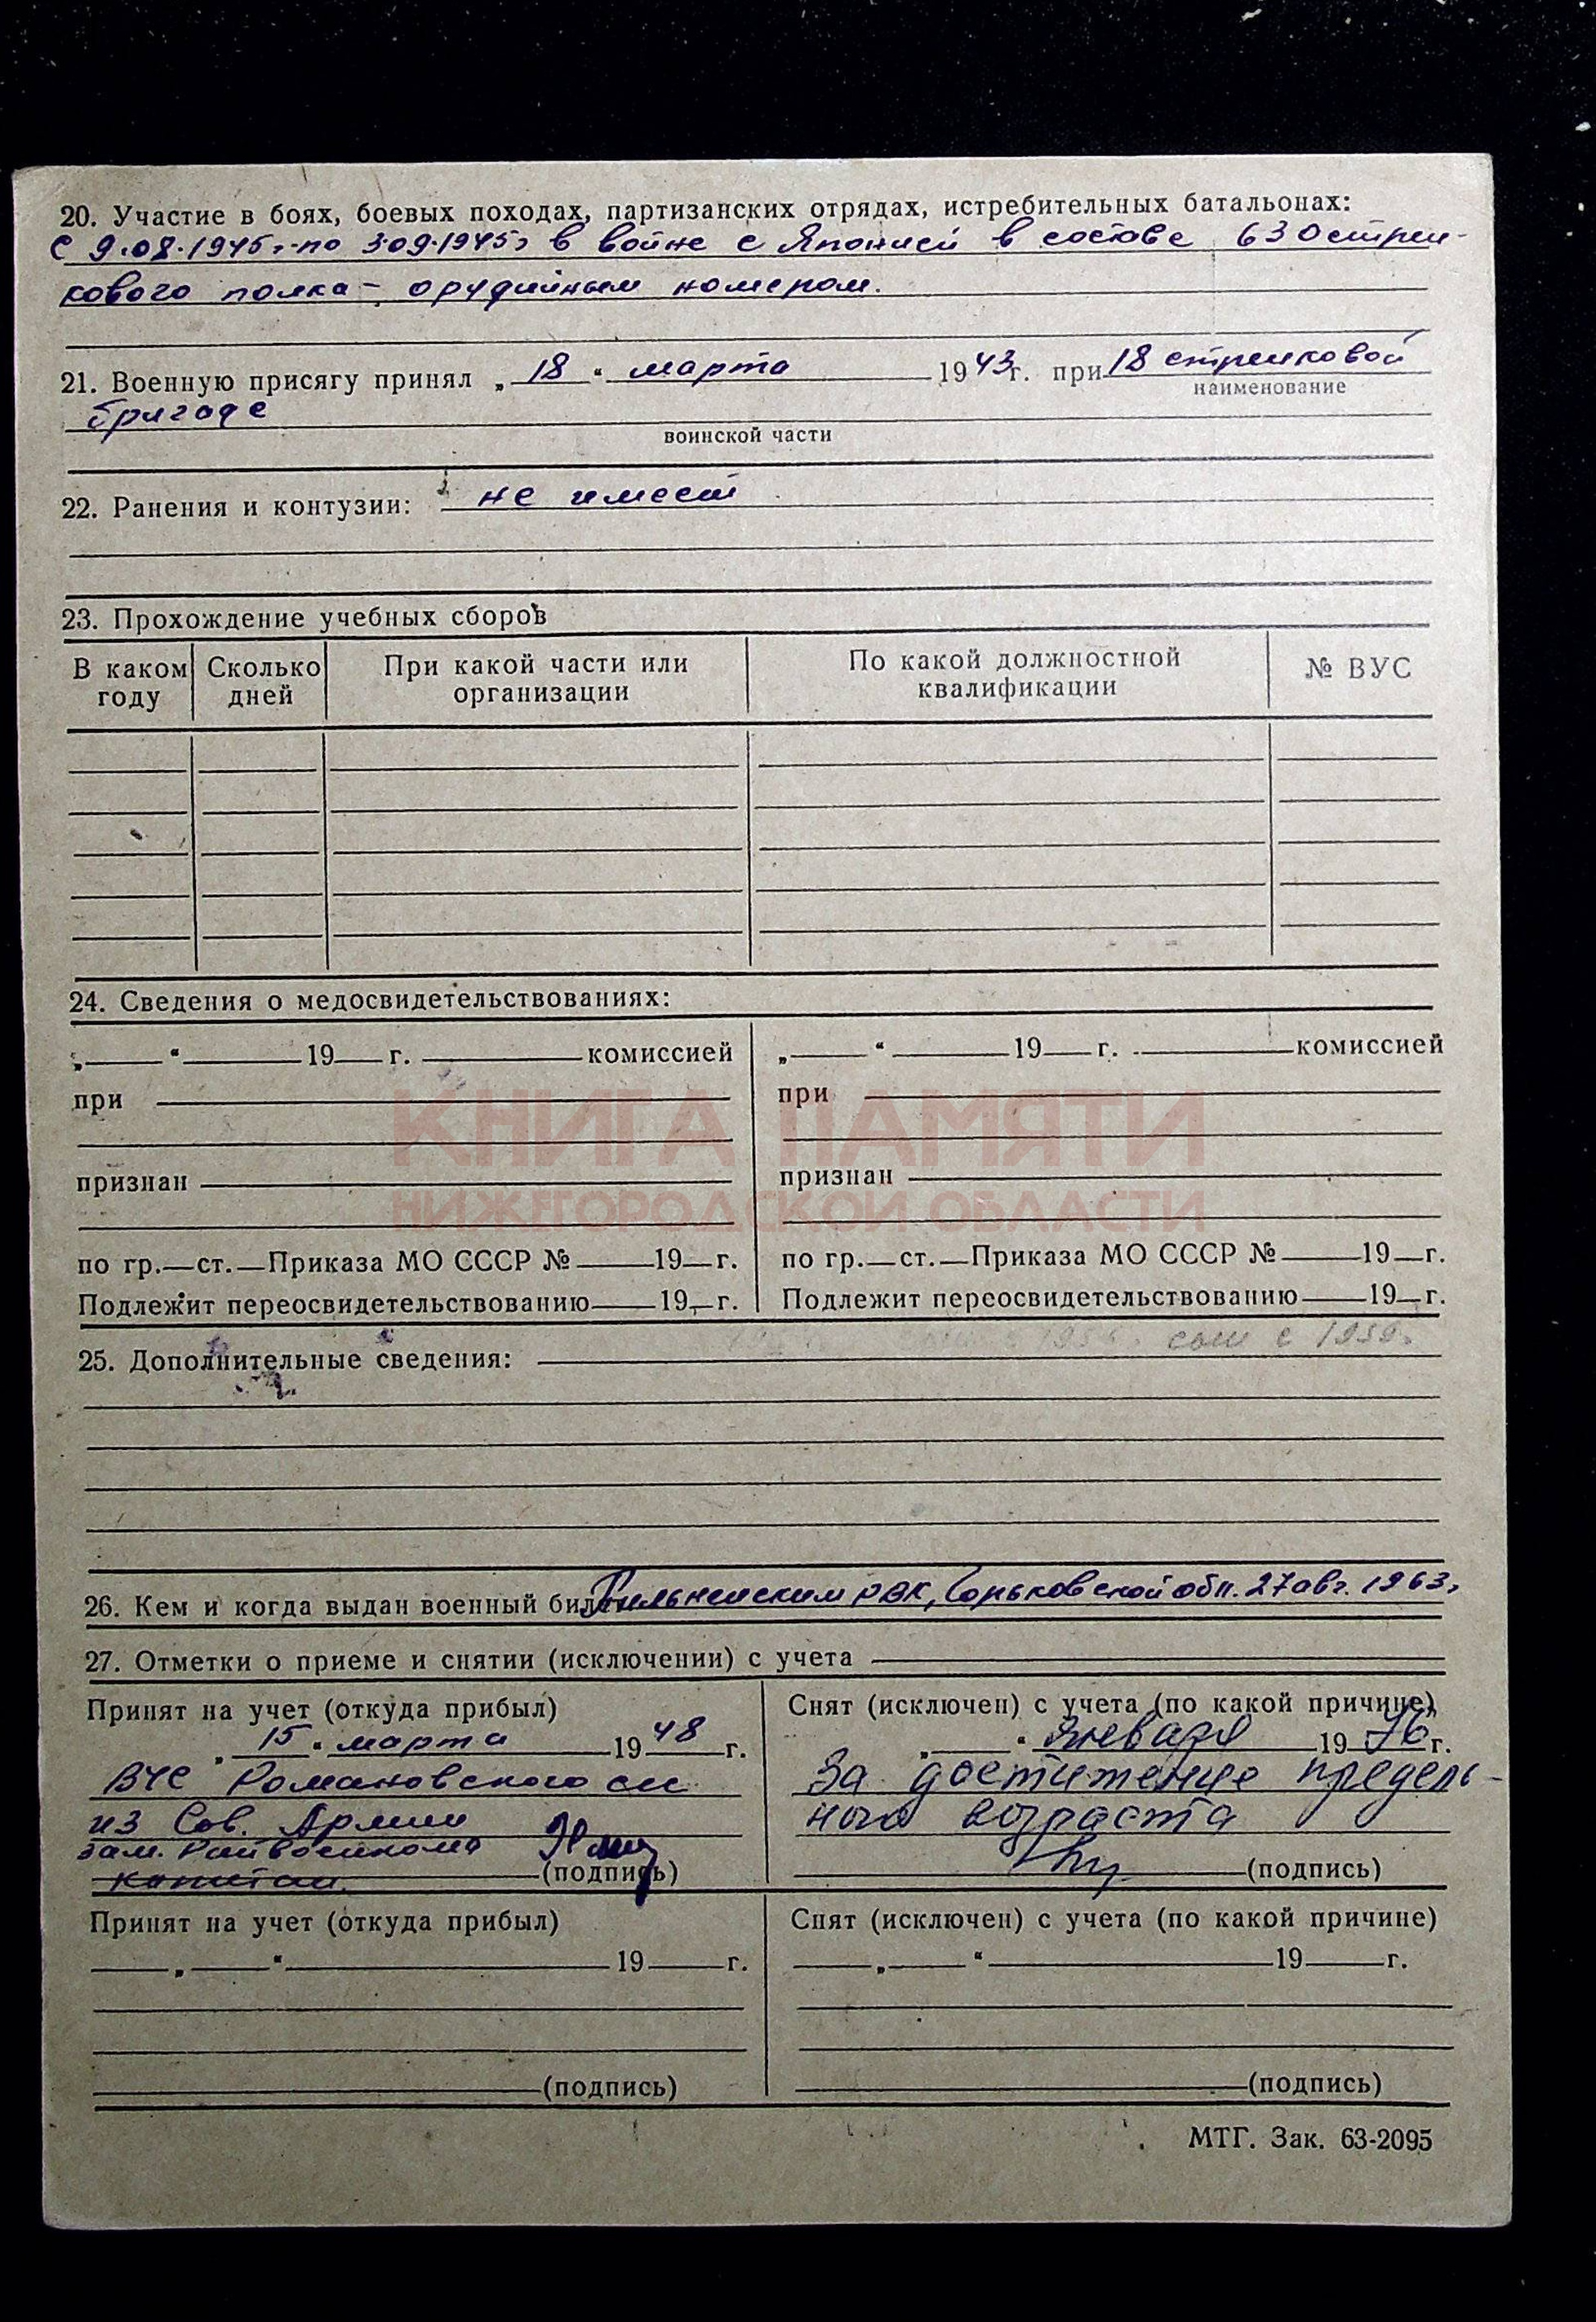 20. Участие в боях, боевых походах, партизанских отрядах, истребительных батальонах:
С 9.08.1945г. по 3.09.1945г в войне с Японией в составе 630 стрел-
кового полка – орудийным номером.
21. Военную присягу принял „ 18 “ марта 1943г. при 18 стрелковой
наименование
бригаде
воинской части
22. Ранения и контузии: не имеет
23. Прохождение учебных сборов
В каком году Сколько дней При какой части или организации По какой должностной квалификации № ВУС
24. Сведения о медосвидетельствованиях:
„ “ 19 г. комиссией „ “ 19 г. комиссией
при при
КНИГА ПАМЯТИ
признан признан
НИЖЕГОРОДСКОЙ ОБЛАСТИ
по гр. ст. Приказа МО СССР № 19 г. по гр. ст. Приказа МО СССР № 19 г.
Подлежит переосвидетельствованию 19 г. Подлежит переосвидетельствованию 19 г.
с 1959г.
25. Дополнительные сведения:
26. Кем и когда выдан военный билет Пильненским РВК, Горьковской обл. 27 авг. 1963г
27. Отметки о приеме и снятии (исключении) с учета
Принят на учет (откуда прибыл) Снят (исключен) с учета (по какой причине)
„ 15 “ марта 1948 г. „ “ января 1976 г.
Романовского За достижение предель-
из Сов. Армии ного возраста
зам. Райвоенкома
капитан (подпись) (подпись)
Принят на учет (откуда прибыл) Снят (исключен) с учета (по какой причине)
„ “ 19 г. „ “ 19 г.
(подпись) (подпись)
МТГ. Зак. 63-2095